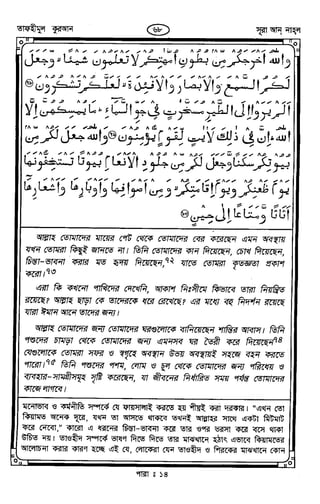 তাফহীমুল কুরআন
৬৮
সূরা আন্ নাহল
وَاللهُ أَخْرَجَكُمْ مِّنْ بُطُونِ أُمَّهٰتِكُمْ لَا تَعْلَمُونَ شَيْئًا وَّجَعَلَ
لَكُمُ السَّمْعَ وَالْأَبْصَارَ وَالْأَفْئِدَةَ لَعَلَّكُمْ تَشْكُرُونَ ﴿٧٨﴾
أَلَمْ يَرَوْا إِلَى الطَّيْرِ مُسَخَّرٰتٍ فِي جَوِّ السَّمَاءِ مَا يُمْسِكُهُنَّ إِلَّا
اللهُ إِنَّ فِي ذٰلِكَ لَاٰيٰتٍ لِّقَوْمٍ يُّؤْمِنُونَ ﴿٧٩﴾ وَاللهُ جَعَلَ لَكُمْ مِّنْ
بُيُوتِكُمْ سَكَنًا وَّجَعَلَ لَكُمْ مِّنْ جُلُودِ الْأَنْعَامِ بُيُوتًا تَسْتَخِفُّونَهَا
يَوْمَ ظَعْنِكُمْ وَيَوْمَ إِقَامَتِكُمْ وَمِنْ أَصْوَافِهَا وَأَوْبَارِهَا وَأَشْعَارِهَا
أَثَاثًا وَّمَتَاعًا إِلٰى حِينٍ ﴿٨٠﴾
আল্লাহ তোমাদের মায়ের পেট থেকে তোমাদের বের করেছেন এমন অবস্থায়
যখন তোমরা কিছুই জানতে না। তিনি তোমাদের কান দিয়েছেন, চোখ দিয়েছেন,
চিন্তা-ভাবনা করার মত হৃদয় দিয়েছেন,৭২ যাতে তোমরা কৃতজ্ঞতা প্রকাশ
করো।৭৩
এরা কি কখনো পাখিদের দেখেনি, আকাশ নিঃসীমে কিভাবে তারা নিয়ন্ত্রিত
রয়েছে? আল্লাহ ছাড়া কে তাদেরকে ধরে রেখেছে? এর মধ্যে বহু নিদর্শন রয়েছে
যারা ঈমান আনে তাদের জন্য।
আল্লাহ তোমাদের জন্য তোমাদের ঘরগুলোকে বানিয়েছেন শান্তির আবাস। তিনি
পশুদের চামড়া থেকে তোমাদের জন্য এমনসব ঘর তৈরী করে দিয়েছেন৭৪
যেগুলোকে তোমরা সফর ও স্বগৃহে অবস্থান উভয় অবস্থায়ই সহজে বহন করতে
পারো।৭৫ তিনি পশুদের পশম, লোম ও চুল থেকে তোমাদের জন্য পরিধেয় ও
ব্যবহার-সামগ্রীসমূহ সৃষ্টি করেছেন, যা জীবনের নির্ধারিত সময় পর্যন্ত তোমাদের
কাজে লাগবে।
মনোভাব ও কর্মনীতি সম্পর্কে যে ফায়সালাই করতে হয় শীঘ্রই করা দরকার। "এখন তো
কিয়ামত অনেক দূরে, যখন তা আসতে থাকবে তখনই আল্লাহর সাথে একটা মিটমাট
করে নেবো," কারো এ ধরনের চিন্তা-ভাবনা করে তার ওপর ভরসা করে বসে থাকা
উচিত নয়। তাওহীদ সম্পর্কে ভাষণ দিতে দিতে তার মাঝখানে হঠাৎ এভাবে কিয়ামতের
আলোচনা করার কারণ হচ্ছে এই যে, লোকেরা যেন তাওহীদ ও শিরকের মাঝখানে কোন
পারা : ১৪